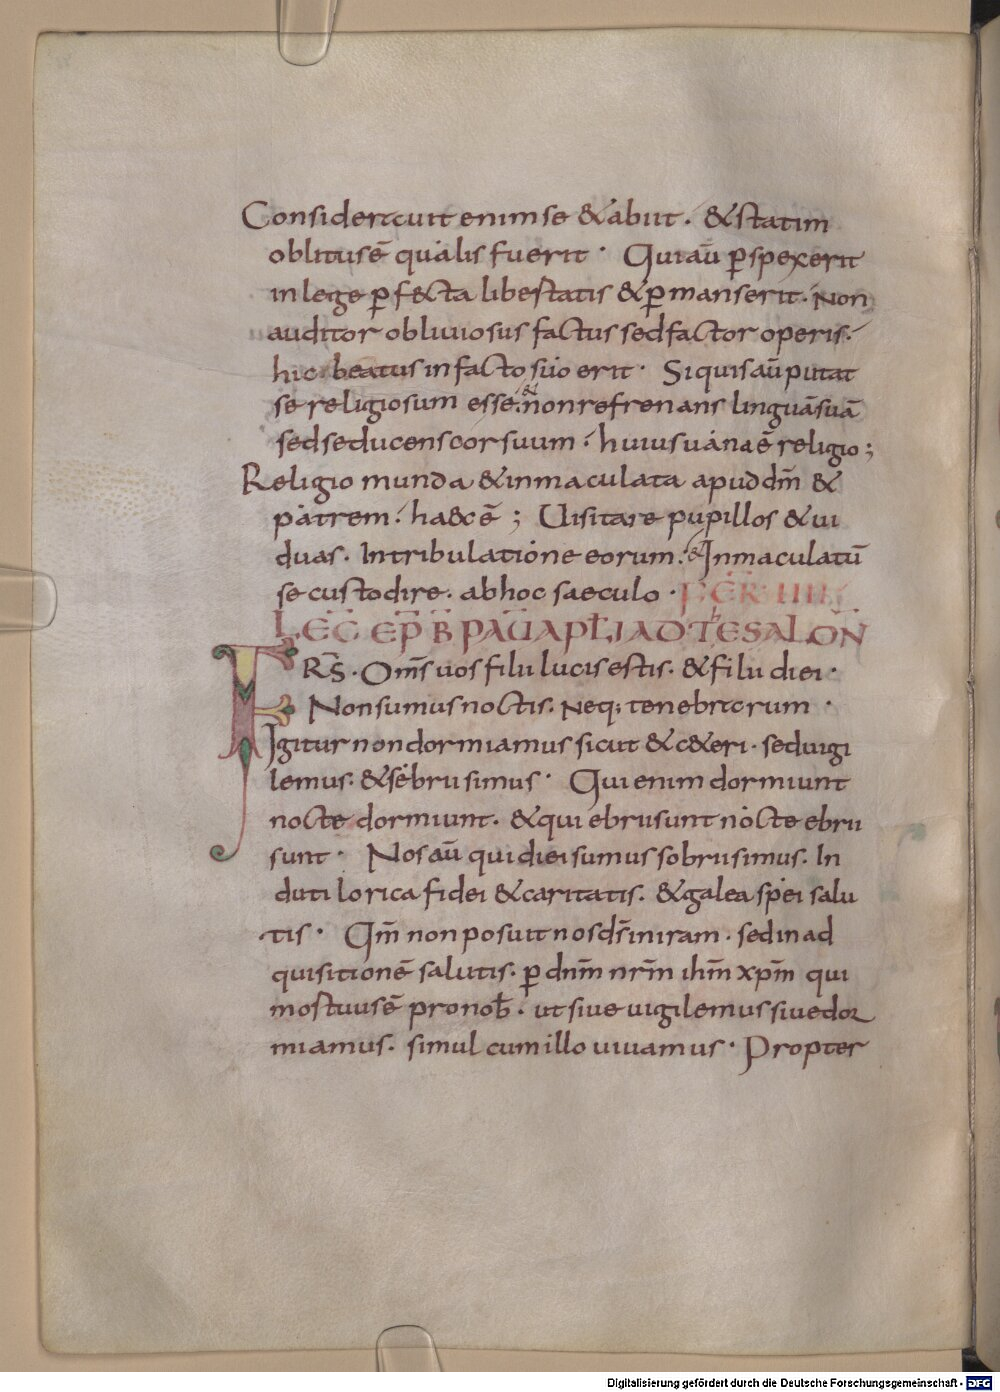 Considerauit enim se & abiit. & statim
oblitus ē qualis fuerit. Qui aū ꝑspexerit
in lege ꝑf&cta libertatis & ꝑmanserit. Non
auditor obliuiosus factus sed factor operis.
hic beatus in facto suo erit. Siquis aū putat
se religiosum esse. & non refrenans linguā suā
sed seducens cor suum. huius uana ē religio;
Religio munda & inmaculata apud dm̄ &
patrem. haec ē; Uisitare pupillos & ui
duas. In tribulatione eorum. & Inmaculatū
se custodire. ab hoc saeculo. FER IIII
LEC EP B PAU APLI AD THESALON
FRS. Om̄s uos filii lucis estis. & filii diei.
Non sumus noctis. Neq; tenebrarum.
Igitur non dormiamus sicut & c&eri. sed uigi
lemus. & sebrii simus. Qui enim dormiunt
nocte dormiunt. & qui ebrii sunt nocte ebrii
sunt. Nos aū qui diei sumus sobrii simus. In
duti lorica fidei & caritatis. & galea spei salu
tis. Qm̄ non posuit nos ds̄ in iram. sed in ad
quisitionē salutis. ꝑ dnm̄ nrm̄ ihm̄ xpm̄ qui
mortuus ē pro nob̄. ut siue uigilemus siue dor
miamus. simul cum illo uiuamus. Propter
Digitalisierung gefördert durch die Deutsche Forschungsgemeinschaft - DFG